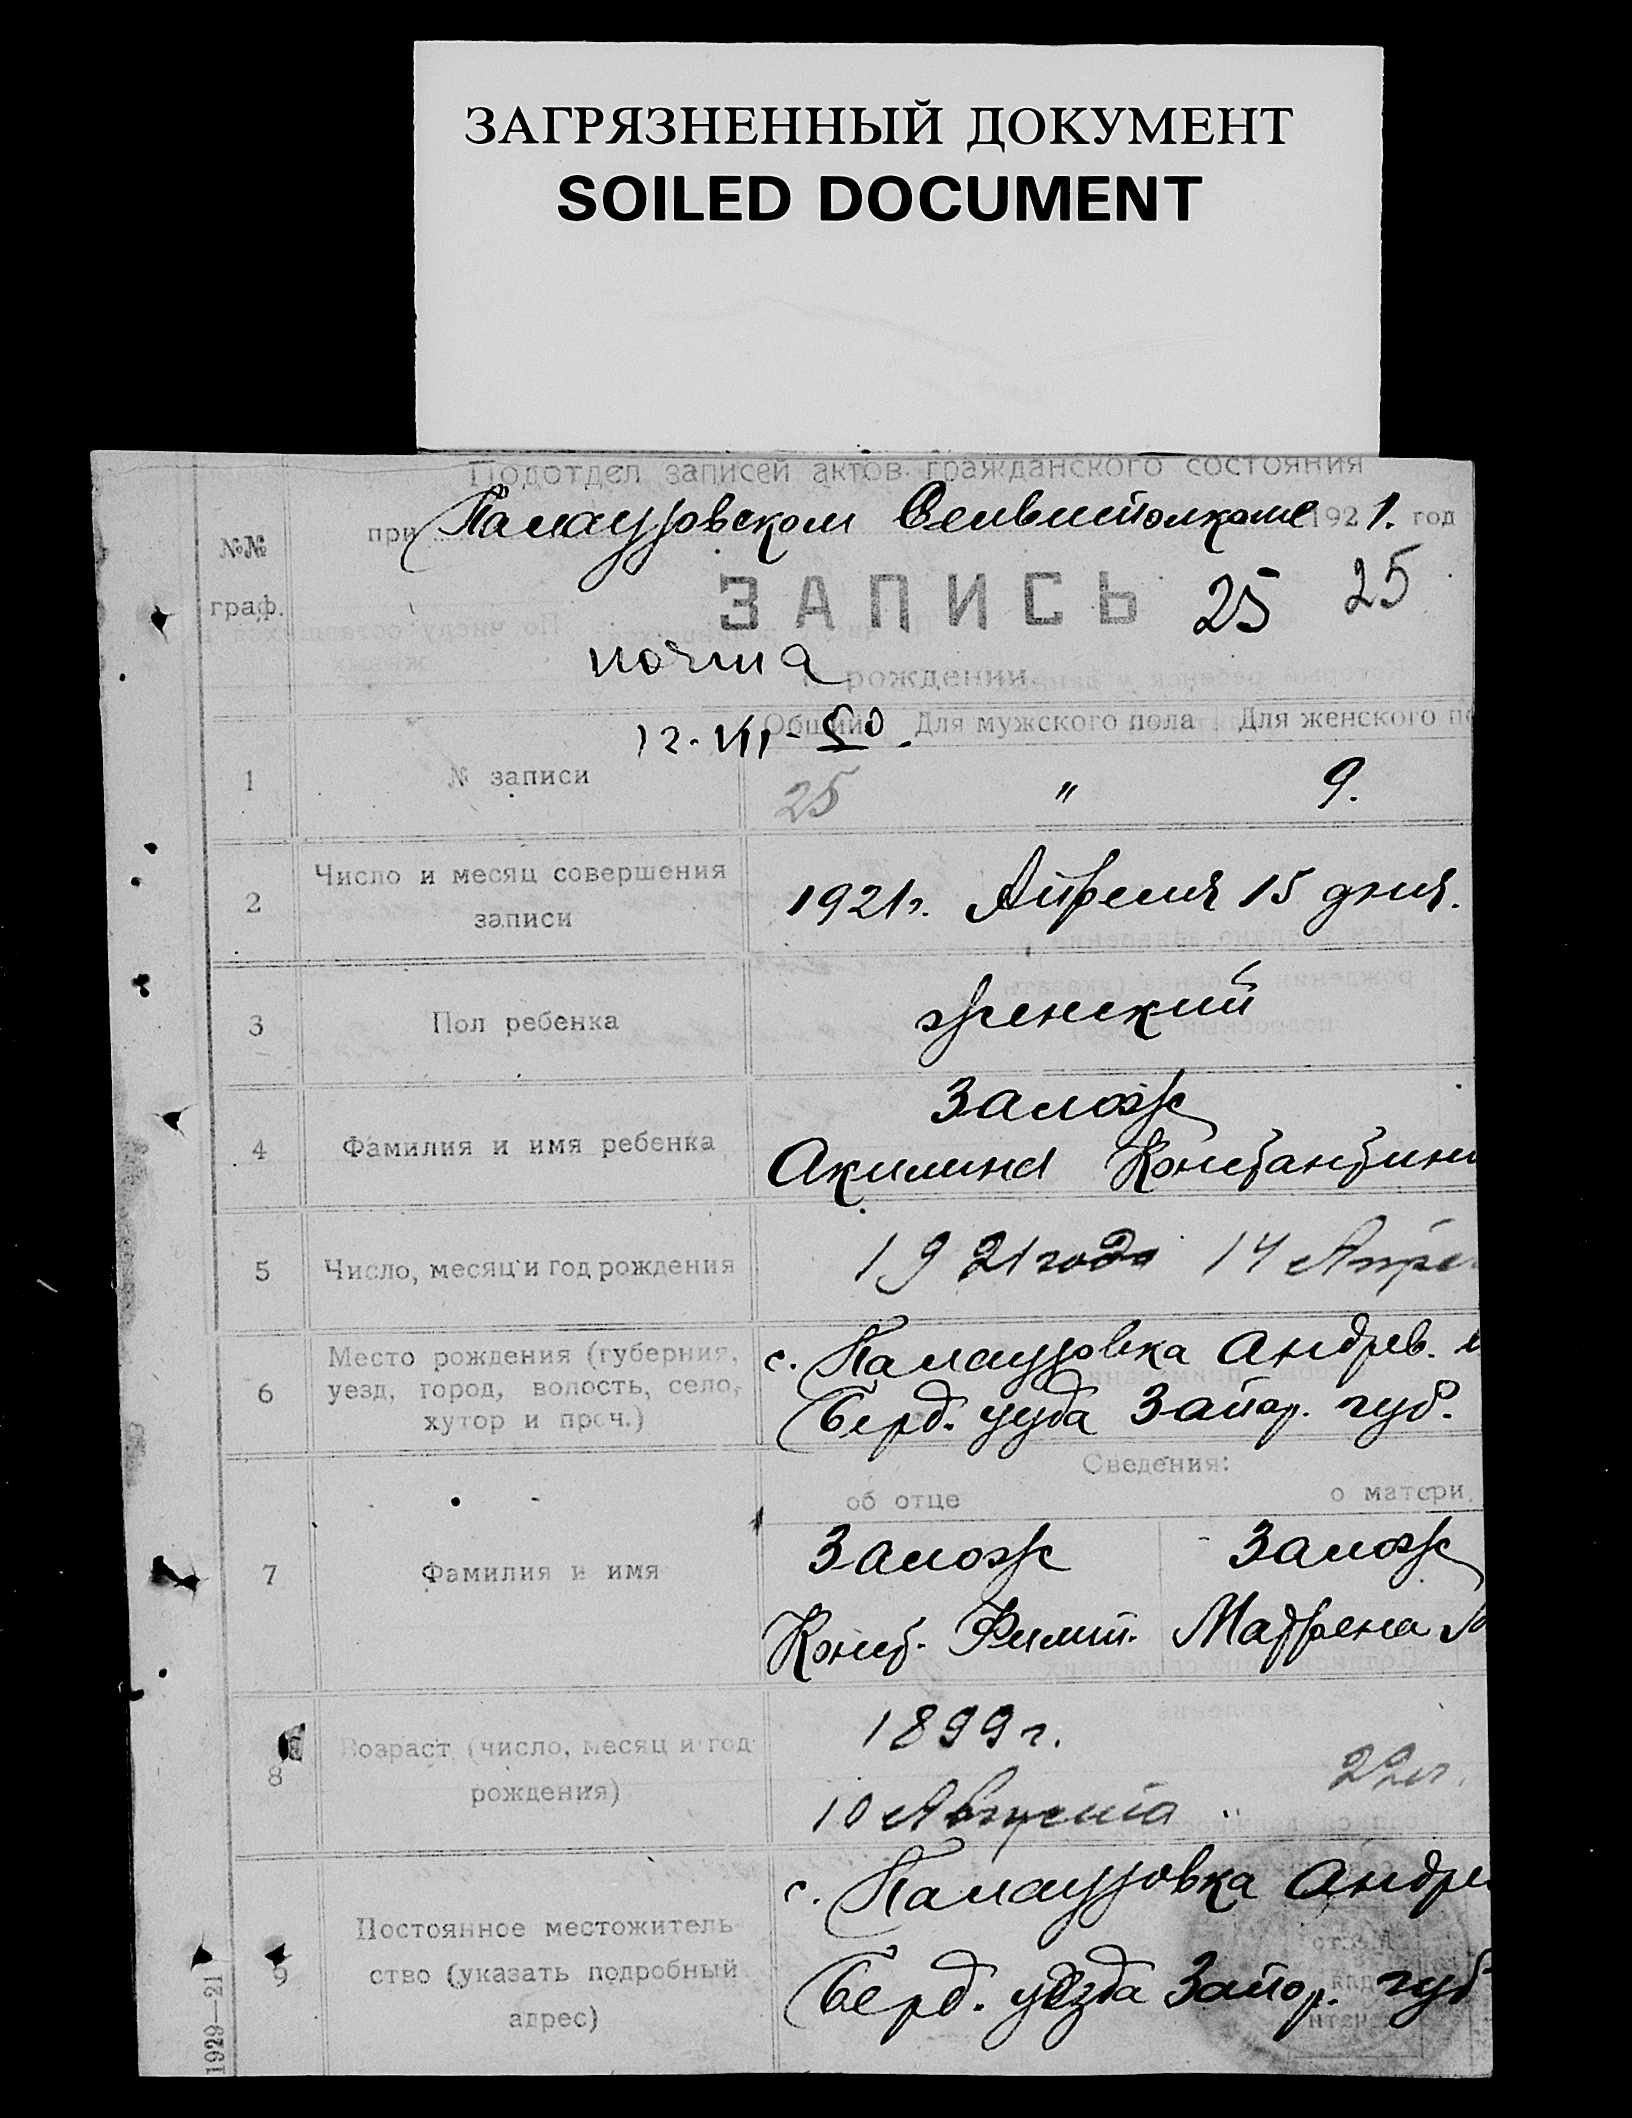 ЗАГРЯЗНЕННЫЙ ДОКУМЕНТ
SOILED DOCUMENT
Подотдел записей актов гражданского состояния
№№
граф.
при Палаузовском Сельисполкоме 1921. год
ЗАПИСЬ 25 25
почта
о рождении
12.VII-50.
Общий Для мужского пола Для женского по
1
№ записи
25 " 9.
2
Число и месяц совершения
записи
1921г. Апреля 15 дня.
3
Пол ребенка
женский
4
Фамилия и имя ребенка
Залож
Акилина Константин
5
Число, месяц и год рождения
1921 года 14 Апре
6
Место рождения (губерния,
уезд, город, волость, село,
хутор и проч.)
с. Палаузовка Андрев.
Берд. уузда Запор. губ.
Сведения:
об отце о матери
7
Фамилия и имя
Залож
Конст. Филип.
Залож
Матрена
8
Возраст (число, месяц и год
рождения)
1899г.
10 Августа "
22л.
9
Постоянное местожитель
ство (указать подробный
адрес)
с. Палаузовка Андре
Берд. уезда Запор. губ
1929—21